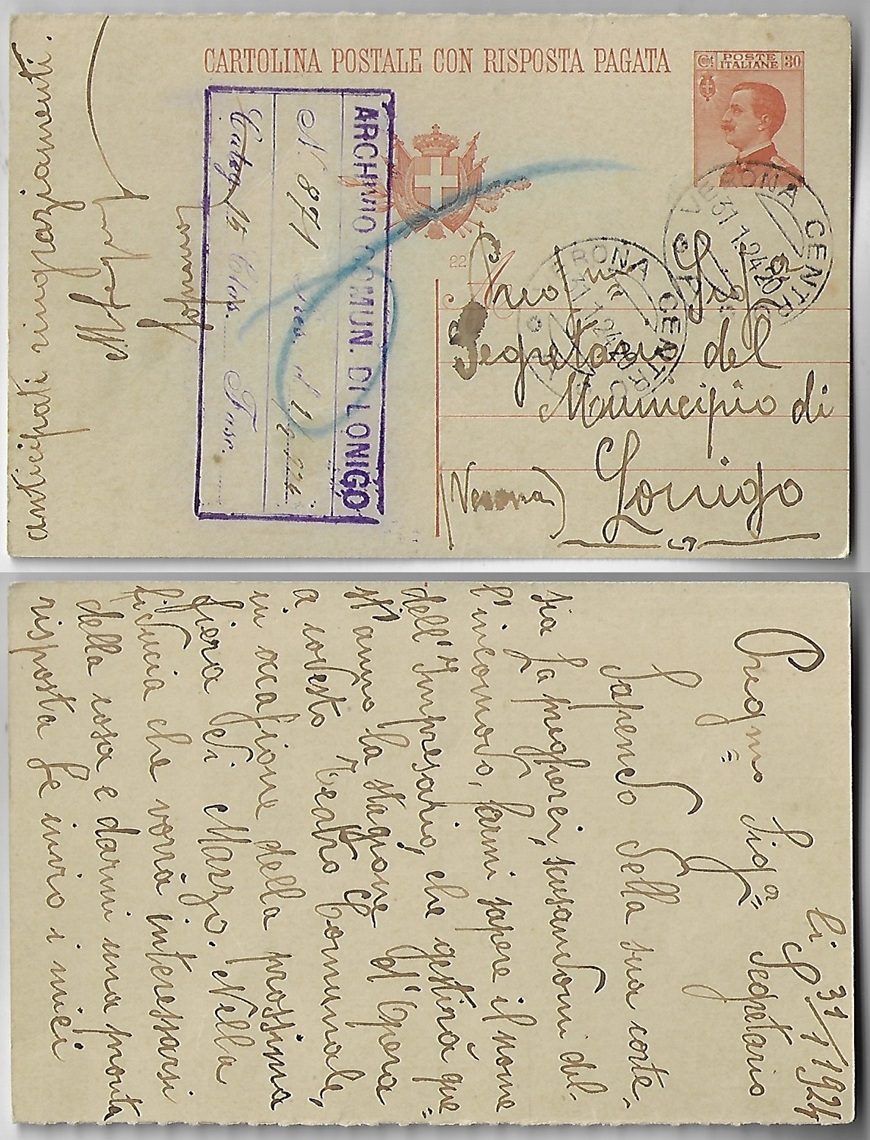 CARTOLINA POSTALE CON RISPOSTA PAGATA
Cmi POSTE ITALIANE 30
VERONA CENTRO
31 1.24 20
VERONA CENTRO
31 1.24 20
ARCHIVIO COMUN. DI LONIGO
N. 871
Categ. 15 Class. Fasc.
22
Sig.
Segretario del
Municipio di
Lonigo
(Verona)
li 31/1 1924
Preg.mo Sig.r Segretario
Sapendo della sua corte-
sia La pregherei, scusandomi del-
l'incomodo, farmi sapere il nome
dell'Impresario, che gestirà que=
st'anno la stagione d'Opera
a codesto Teatro Comunale,
in occasione della prossima
fiera di Marzo. Nella
fiducia che vorrà interessarsi
della cosa e darmi una pronta
risposta Le invio i miei
anticipati ringraziamenti.